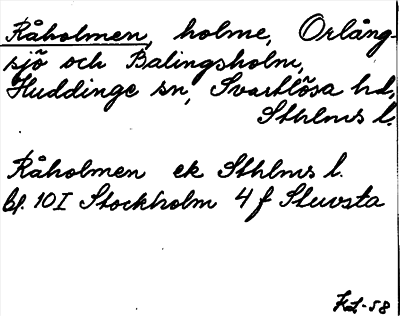 Råholmen, holme, Orlång-
sjö och Balingsholm,
Huddinge sn, Svartlösa hd,
Sthlms l.
Råholmen ek Sthlms l.
bl. 10I Stockholm 4 f Stuvsta